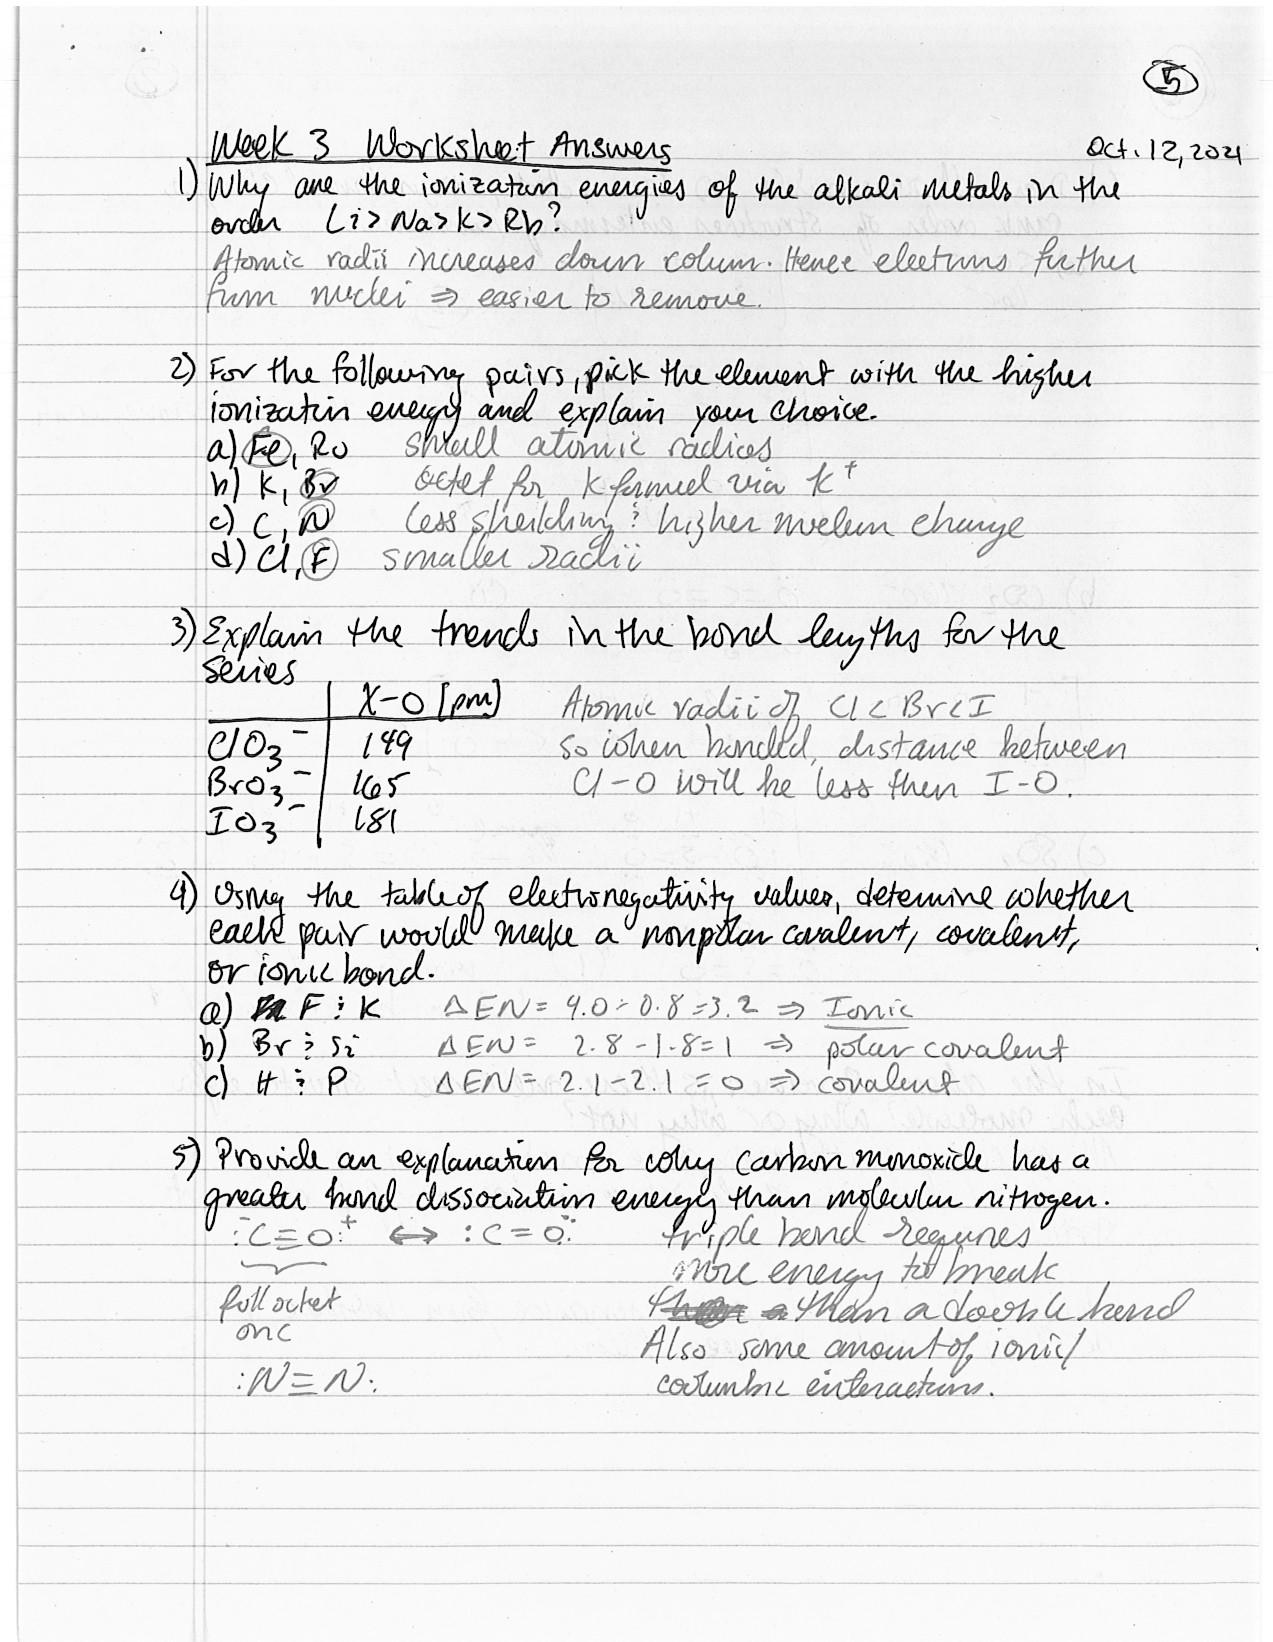 5
Week 3 Worksheet Answers
Oct. 12, 2021
1) Why are the ionization energies of the alkali metals in the
order Li > Na > K > Rb?
Atomic radii increases down colum. Hence electrons further
from nuclei ⇒ easier to remove.
2) For the following pairs, pick the element with the higher
ionization energy and explain your choice.
a) Fe, Ru small atomic radices
b) K, Br octet for K formed via K+
c) C, N less sheilding & higher nuclear charge
d) Cl, F smaller radii
3) Explain the trends in the bond lengths for the
series
X-O [pm] Atomic radii of Cl < Br < I
ClO3- 149 so when bonded, distance between
BrO3- 165 Cl-O will be less then I-O.
IO3- 181
4) Using the table of electronegativity values, determine whether
each pair would make a nonpolar covalent, covalent,
or ionic bond.
a) F & K ΔEN = 4.0 - 0.8 = 3.2 ⇒ Ionic
b) Br & Si ΔEN = 2.8 - 1.8 = 1 ⇒ polar covalent
c) H & P ΔEN = 2.1 - 2.1 = 0 ⇒ covalent
5) Provide an explanation for why carbon monoxide has a
greater bond dissociation energy than molecular nitrogen.
:C≡O:+ ↔ :C=O: triple bond requires
more energy to break
full octet than a double bond
on C Also some amount of ionic/
:N≡N: coulumbic interactions.